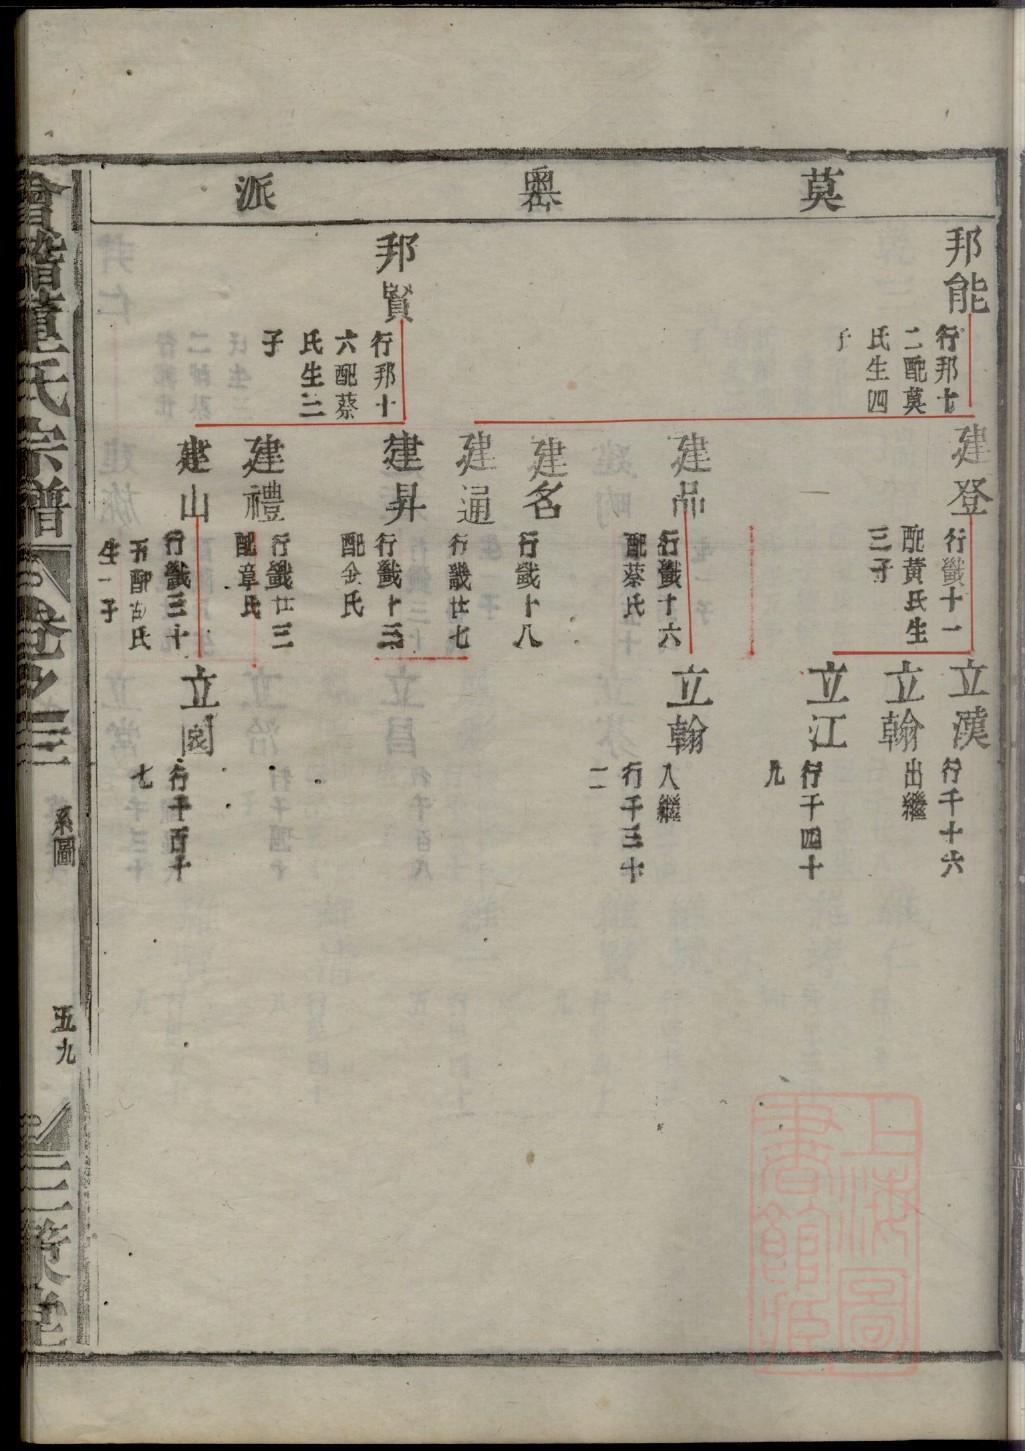 莫奧派
邦能
行邦七
二配莫
氏生四
子
邦賢
行邦十
六配蔡
氏生三
子
建登
行鐵十一
配黃氏生
三子
建品
行鐵十六
配蔡氏
建名
行鐵十八
建通
行鐵廿七
建昇
行鐵十三
配金氏
建禮
行鐵廿三
配章氏
建山
行鐵三十
五配胡氏
生一子
立漢
行千十六
立翰
出繼
立江
行千四十
九
立翰
入繼
行千三十
二
立
行千百十
七
會稽董氏宗譜
卷之三
系圖
五九
三策堂
上海圖
書館藏